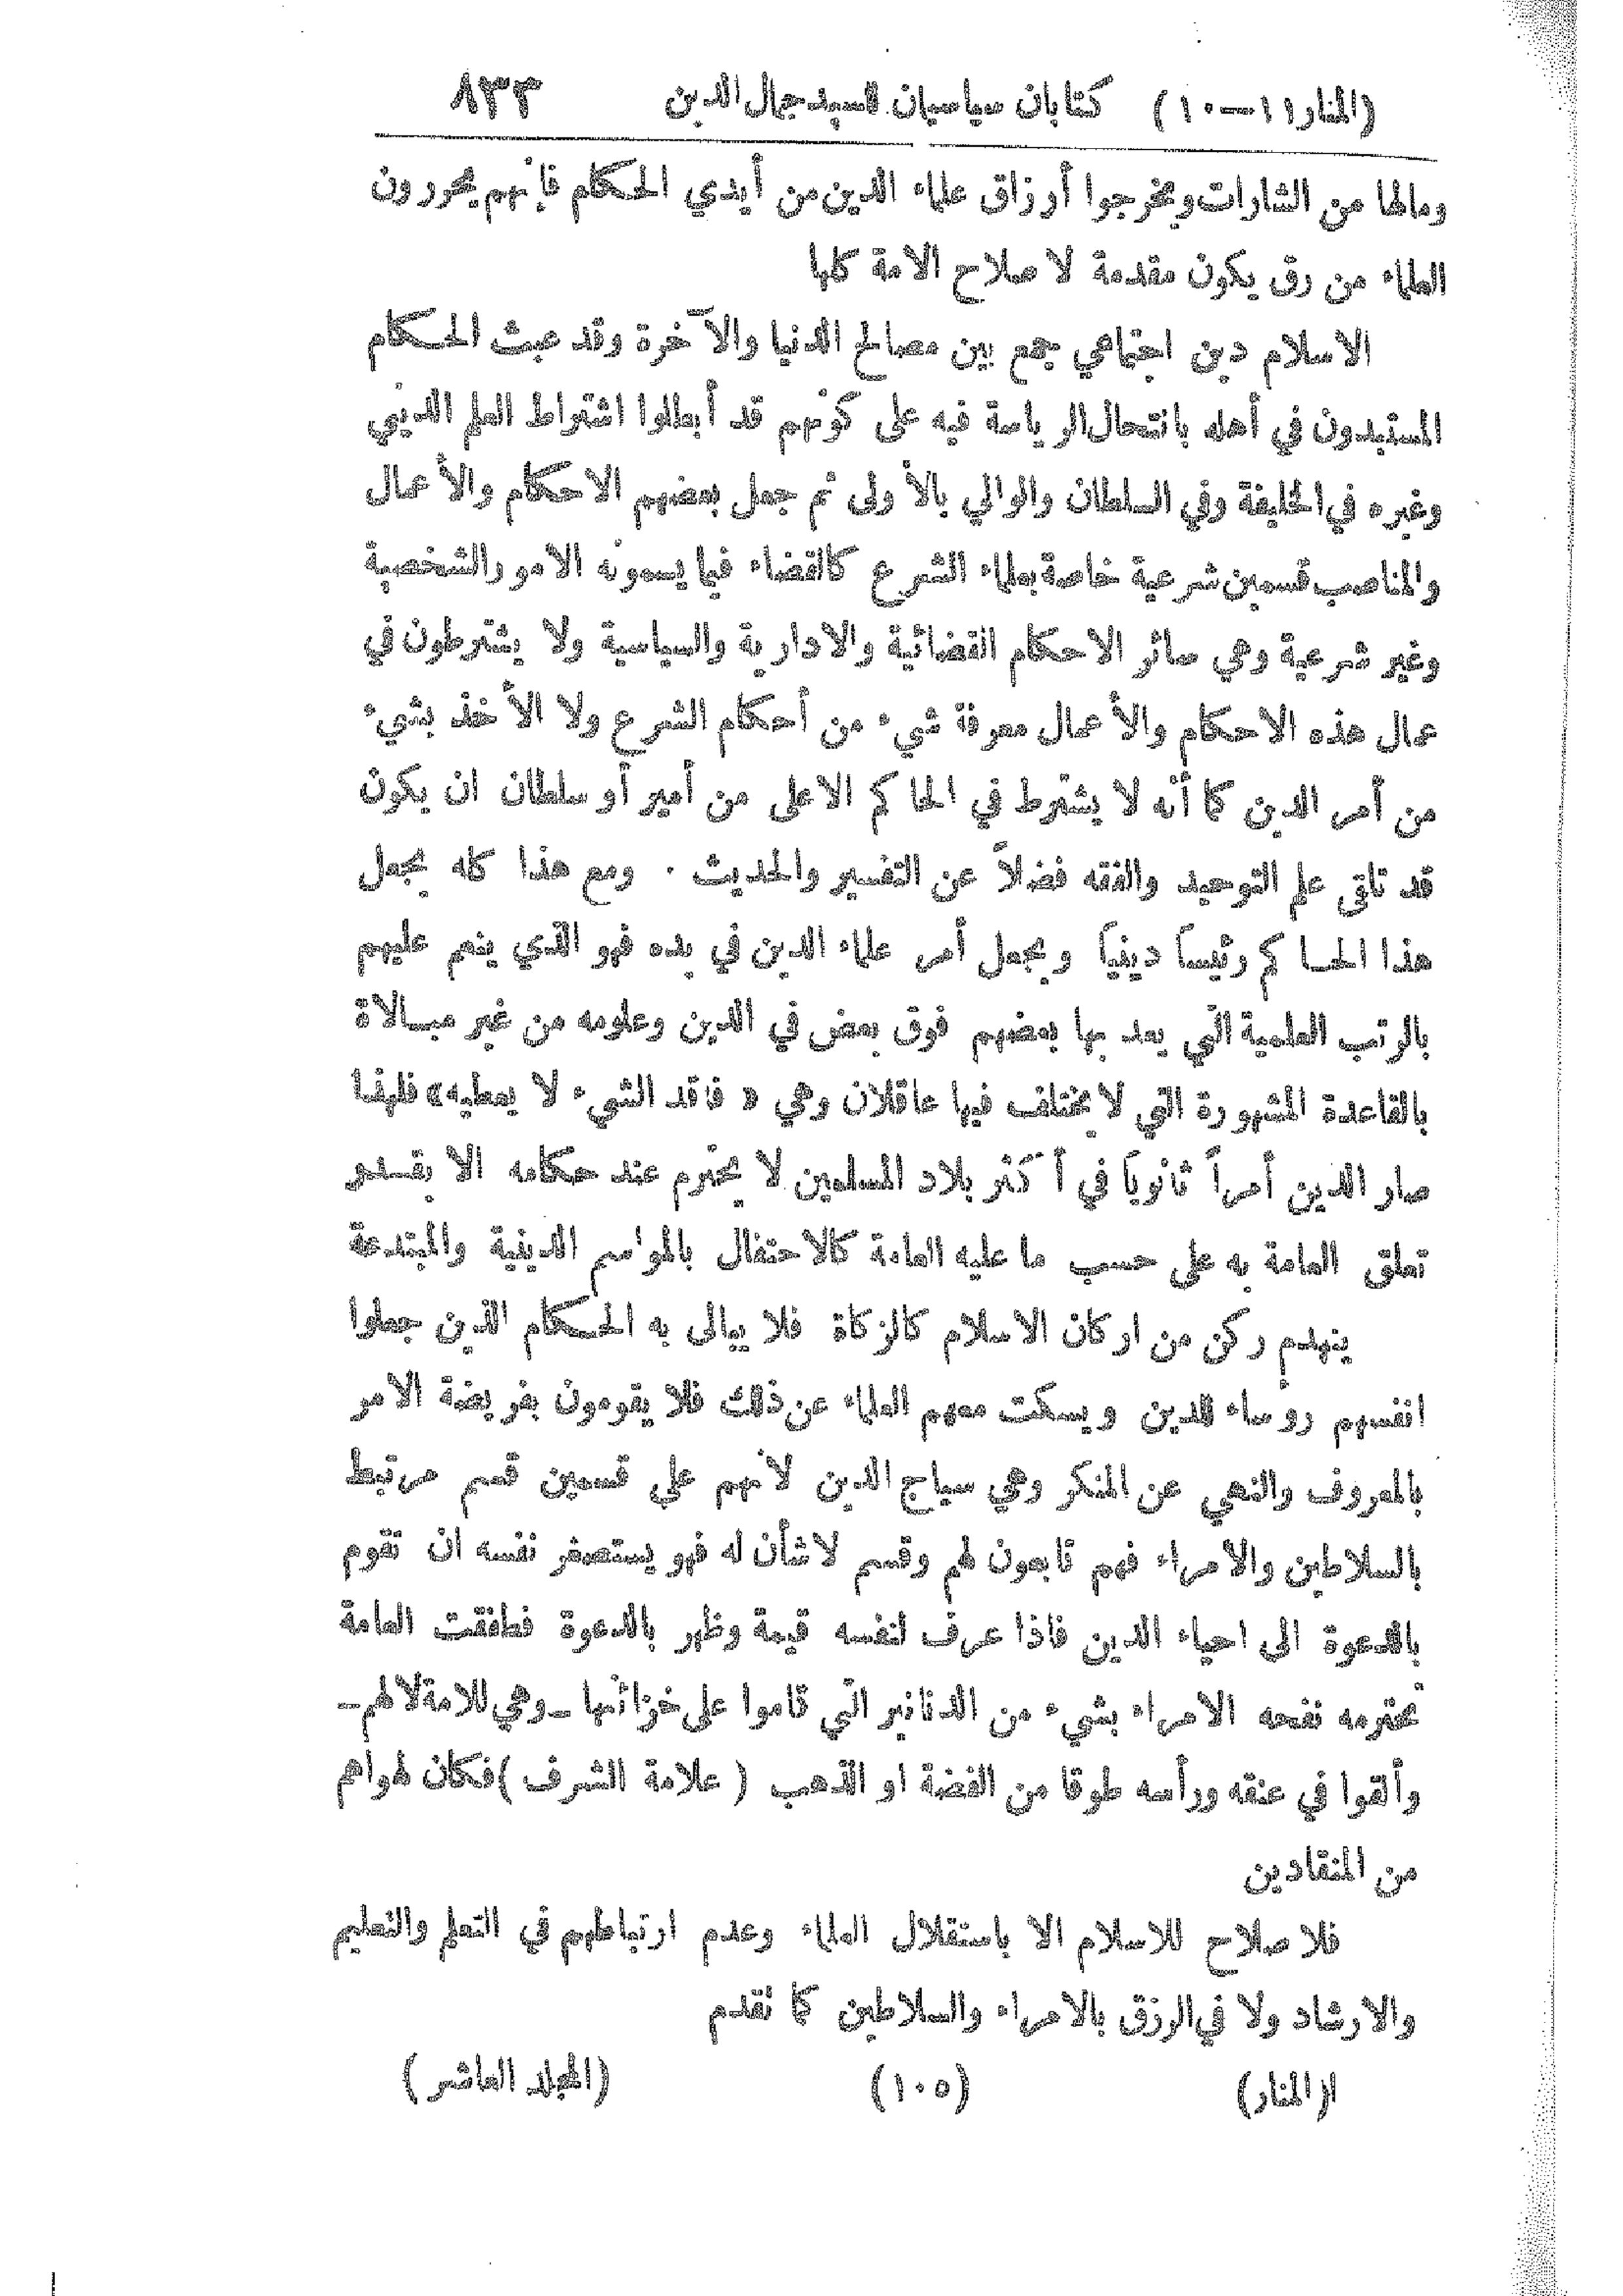 (المنار ١١–١٠) كتابان سياسيان للسيد جمال الدين ٨٣٣
ومالها من الشارات ويخرجوا أرزاق علماء الدين من أيدي الحكام فإنهم يحررون
العلماء من رق يكون مقدمة لا صلاح الامة كلها
الاسلام دين اجتماعي جمع بين مصالح الدنيا والآخرة وقد عبث الحكام
المستبدون في أهله بانتحال الرياسة فيه على كونهم قد أبطلوا اشتراط العلم الديني
وغيره في الخليفة وفي السلطان والوالي بالأولى ثم جعل بعضهم الاحكام والأعمال
والمناصب قسمين شرعية خاصة بعلماء الشرع كالقضاء فيما يسمونه الامور الشخصية
وغير شرعية وهي سائر الاحكام القضائية والادارية والسياسية ولا يشترطون في
عمال هذه الاحكام والأعمال معرفة شيء من أحكام الشرع ولا الأخذ بشيء
من أمر الدين كما أنه لا يشترط في الحاكم الاعلى من أمير أو سلطان ان يكون
قد تلقى علم التوحيد والفقه فضلاً عن التفسير والحديث . ومع هذا كله يجعل
هذا الحاكم رئيساً دينياً ويجعل أمر علماء الدين في يده فهو الذي ينعم عليهم
بالرتب العلمية التي يعد بها بعضهم فوق بعض في الدين وعلومه من غير مبالاة
بالقاعدة المشهورة التي لا يختلف فيها عاقلان وهي « فاقد الشيء لا يعطيه» فلهذا
صار الدين أمراً ثانوياً في أكثر بلاد المسلمين لا يحترم عند حكامه الا بقدر
تعلق العامة به على حسب ما عليه العادة كالاحتفال بالمواسم الدينية والمبتدعة
ينهدم ركن من اركان الاسلام كالزكاة فلا يبالى به الحكام الذين جعلوا
انفسهم روساء للدين ويسكت معهم العلماء عن ذلك فلا يقومون بفريضة الامر
بالمعروف والنهي عن المنكر وهي سياج الدين لأنهم على قسمين قسم مرتبط
بالسلاطين والامراء فهم تابعون لهم وقسم لاشأن له فهو يستصغر نفسه ان تقوم
بالدعوة الى احياء الدين فاذا عرف لنفسه قيمة وظهر بالدعوة فطفقت العامة
تحترمه نفحه الامراء بشيء من الدنانير التي قاموا على خزائنها –وهي للامة لالهم–
وألقوا في عنقه ورأسه طوقا من الفضة او الذهب ( علامة الشرف ) فكان لهواهم
من المنقادين
فلا صلاح للاسلام الا باستقلال العلماء وعدم ارتباطهم في التعلم والتعليم
والارشاد ولا في الرزق بالامراء والسلاطين كما تقدم
(المنار) (١٠٥) (المجلد العاشر)